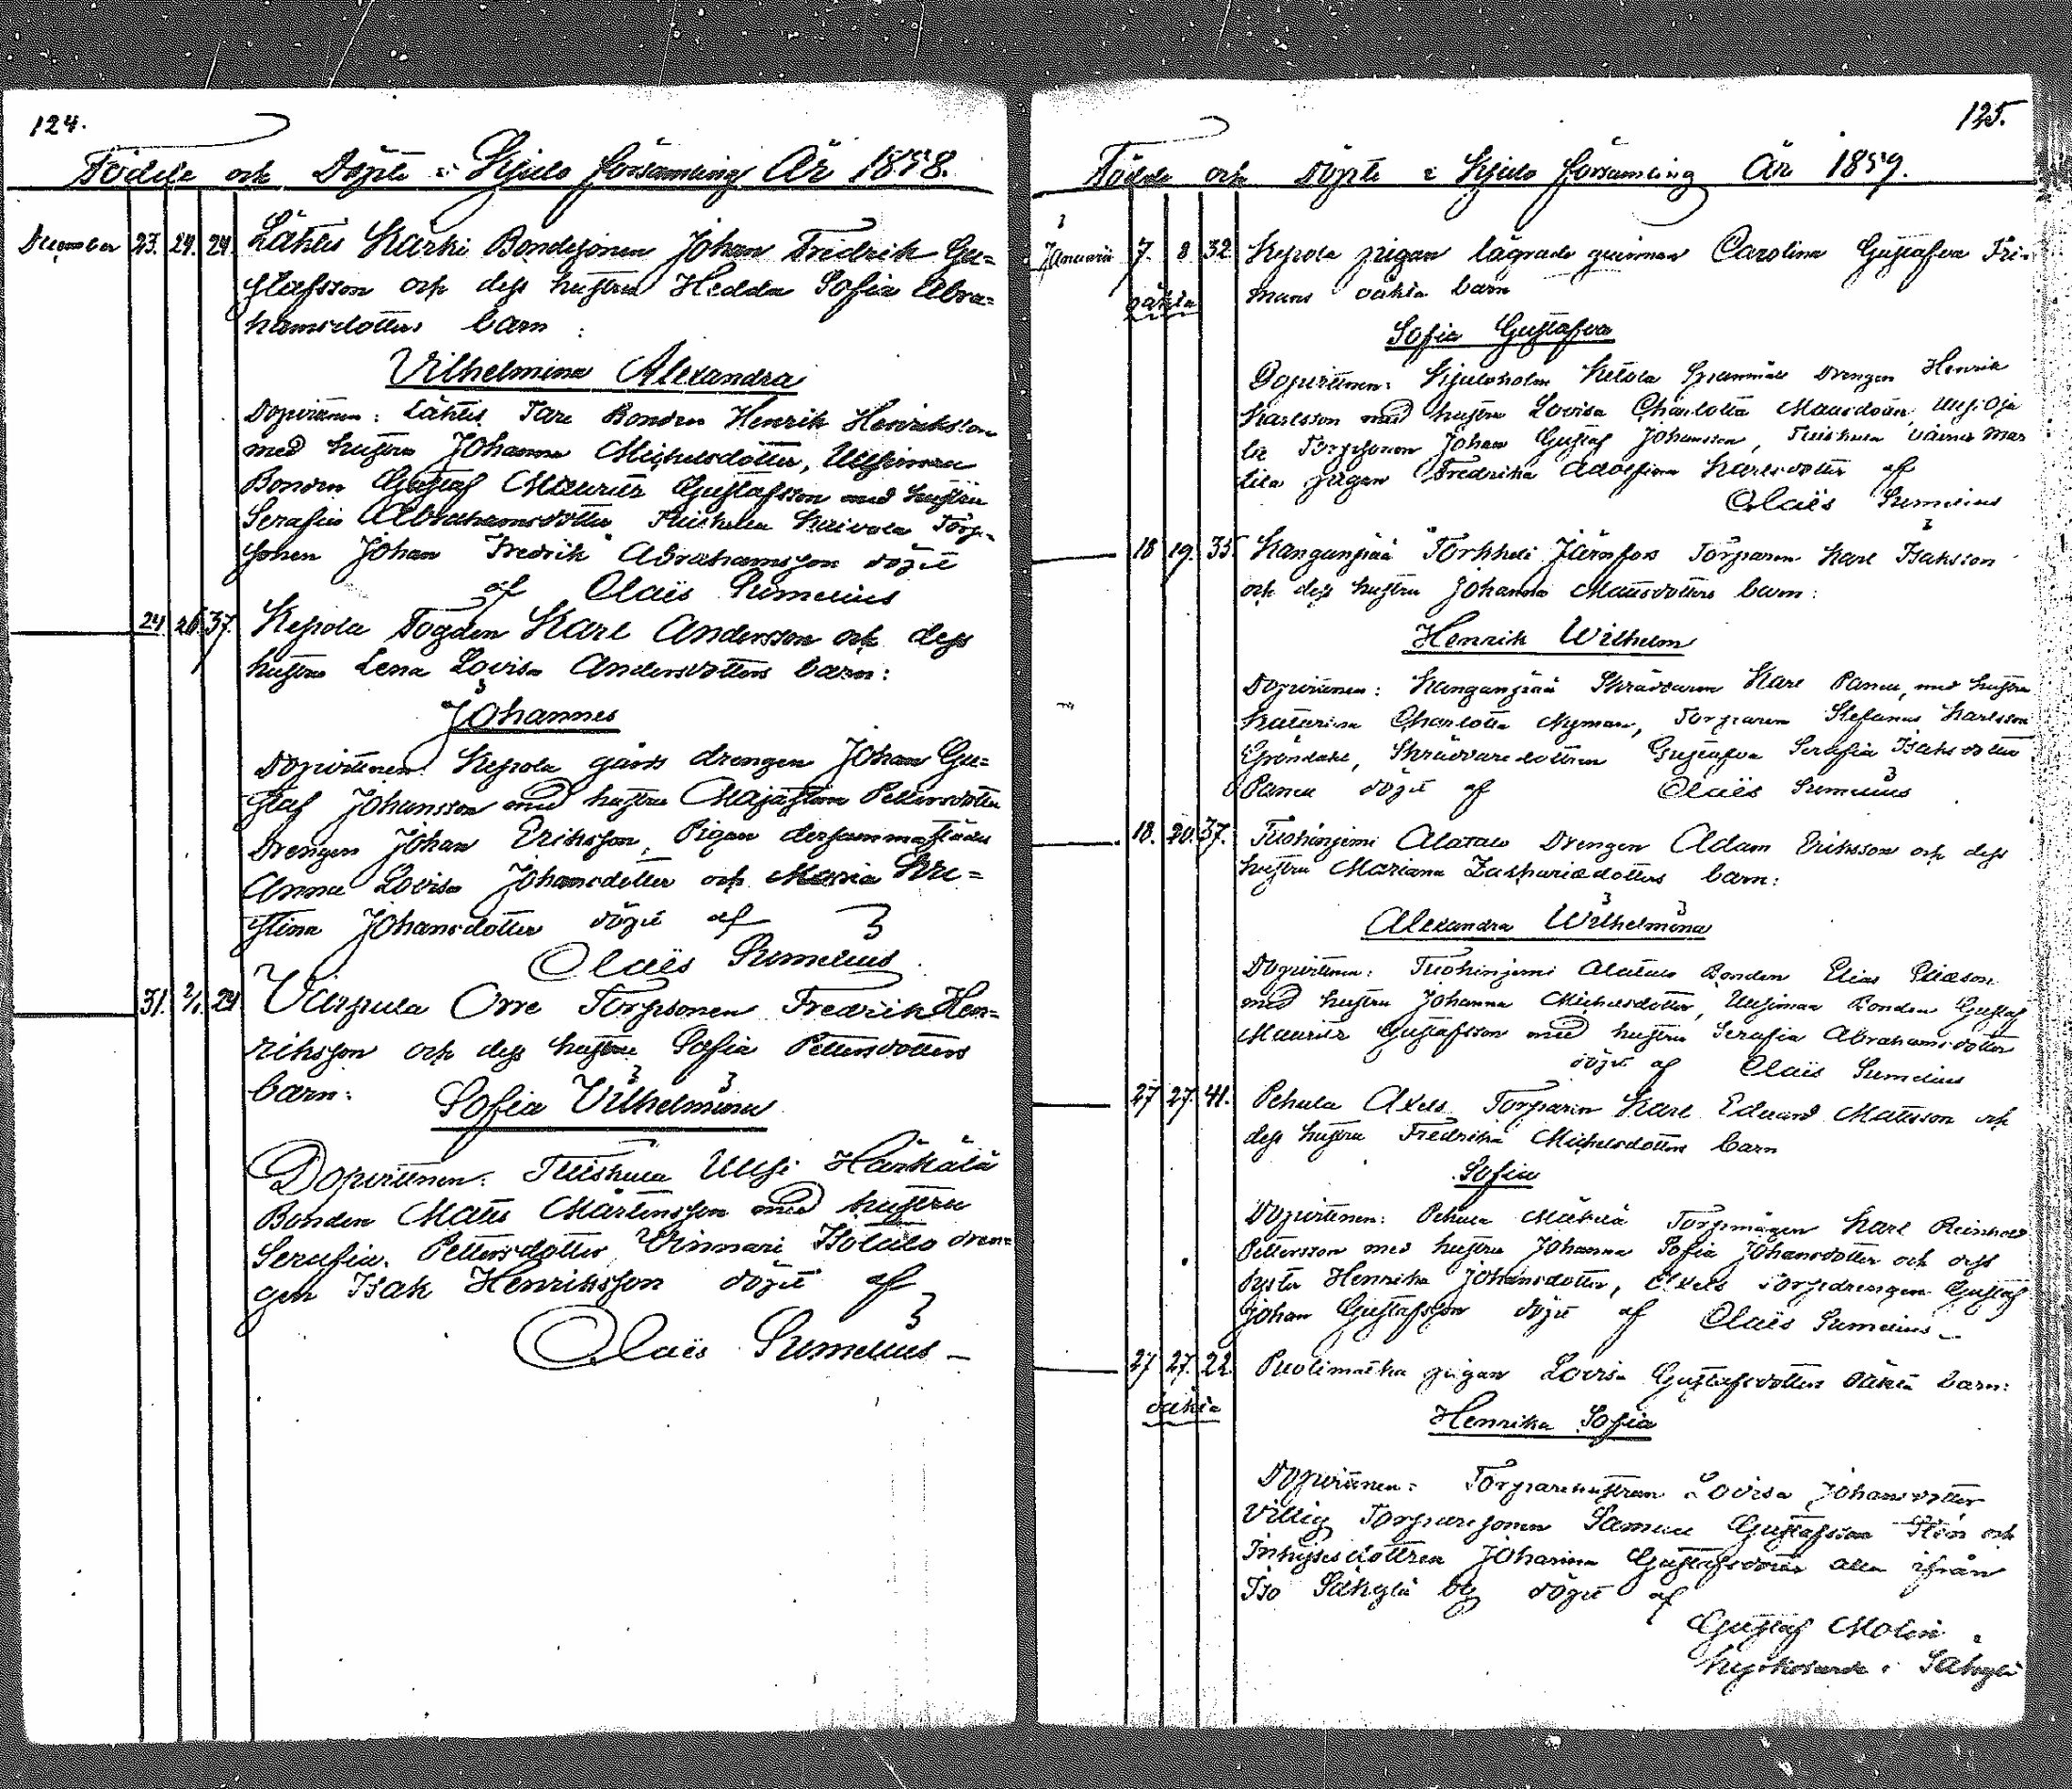 124.
Födde och Döpte i Kjulo församling År 1858.
December 23. 24. 24. Lähtis Karhi Bondesonen Johan Fredrik Gu=
stafsson och dess hustru Hedda Sofia Abra=
hamsdotters barn :
Vilhelmina Alexandra
Dopvittnen: Lähtis Tare Bonden Henrik Henriksson
med hustru Johanna Michelsdotter, Uusimaa
Bonden Gustaf Mauritz Gustafsson med hustru
Serafia Abrahamsdotter Tuiskula Torp=
sonen Johan Fredrik Abrahamsson döpte
af Olaës Sumelius
24. 26. 37. Kepola Fogden Karl Andersson och dess
hustru Lena Lovisa Andersdotters barn:
Johannes
Dopvittnen: Kepola gårds drengen Johan Gu=
staf Johansson med hustru Majastina Pettersdotter
Drengen Johan Eriksson, Pigan dersammastädes
Anna Lovisa Johansdotter och Maria Kri=
stina Johansdotter döpte af
Olaës Sumelius
31. 2/1 24 Värpula Orre Torpsonen Fredrik Hen=
riksson och dess hustru Sofia Pettersdotters
barn:
Sofia Vilhelmina
Dopvittnen: Tuiskula Uusi Härkälä
Bonden Matts Mårtensson med hustru
Serafia Pettersdotter, Vinnari Isotalo dren=
gen Isak Henriksson döpte af
Olaës Sumelius
125.
Födde och Döpte i Kjulo församling År 1859.
Januarii 7. 8 32. Kepola pigan lägrade qvinnan Carolina Gustafva Fri=
mans oäkta barn
oäkta
Sofia Gustafva
Dopvittnen: Kjuloholm Ketola Drengen Henrik
Karlsson med hustru Lovisa Charlotta Mattsdotter, Uusi Oja
Torpsonen Johan Gustaf Johansson, Tuiskula
pigan Fredrika Adolfina Karlsdotter af
Olaës Sumelius
18 19. 35. Kanganpää Torkkeli Järnfors Torparen Karl Isaksson
och dess hustru Johanna Mattsdotters barn:
Henrik Wilhelm
Dopvittnen: Kanganpää Skräddaren Karl Panu, med hustru
Katarina Charlotta Nyman, Torparen Stefanus Karlsson
Gröndahl, Skräddaredottren Gustafva Serafia Isaksdotter
Panu döpte af Olaës Sumelius
18. 20. 37. Tuohiniemi Alatalo Drengen Adam Eriksson och dess
hustru Mariana Zachariedotters barn:
Alexandra Wilhelmina
Dopvittnen: Tuohiniemi Alatalo Bonden Elias Eliasson
med hustru Johanna Michelsdotter, Uusimaa Bonden Gustaf
Mauritz Gustafsson med hustru Serafia Abrahamsdotter
döpte af Olaës Sumelius
27 27. 41. Pehula Axels Torparen Karl Eduard Mattsson och
dess hustru Fredrika Michelsdotters barn
Sofia
Dopvittnen: Pehula Mäkilä Torpmågen Karl Reinhold
Pettersson med hustru Johanna Sofia Johansdotter och dess
syster Henrika Johansdotter, Axels Torpdrengen Gustaf
Johan Gustafsson döpte af Olaës Sumelius
27 27. 22. Puolimatka pigan Lovisa Gustafsdotters oäkta barn:
oäkta
Henrika Sofia
Dopvittnen: Torparehustrun Lovisa Johansdotter
Villig Torparesonen Samuel Gustafsson Sten och
Inhysesdottren Johanna Gustafsdotter alla ifrån
Iso Säkylä by döpte af
Gustaf Molin
Kyrkoherde i Säkylä